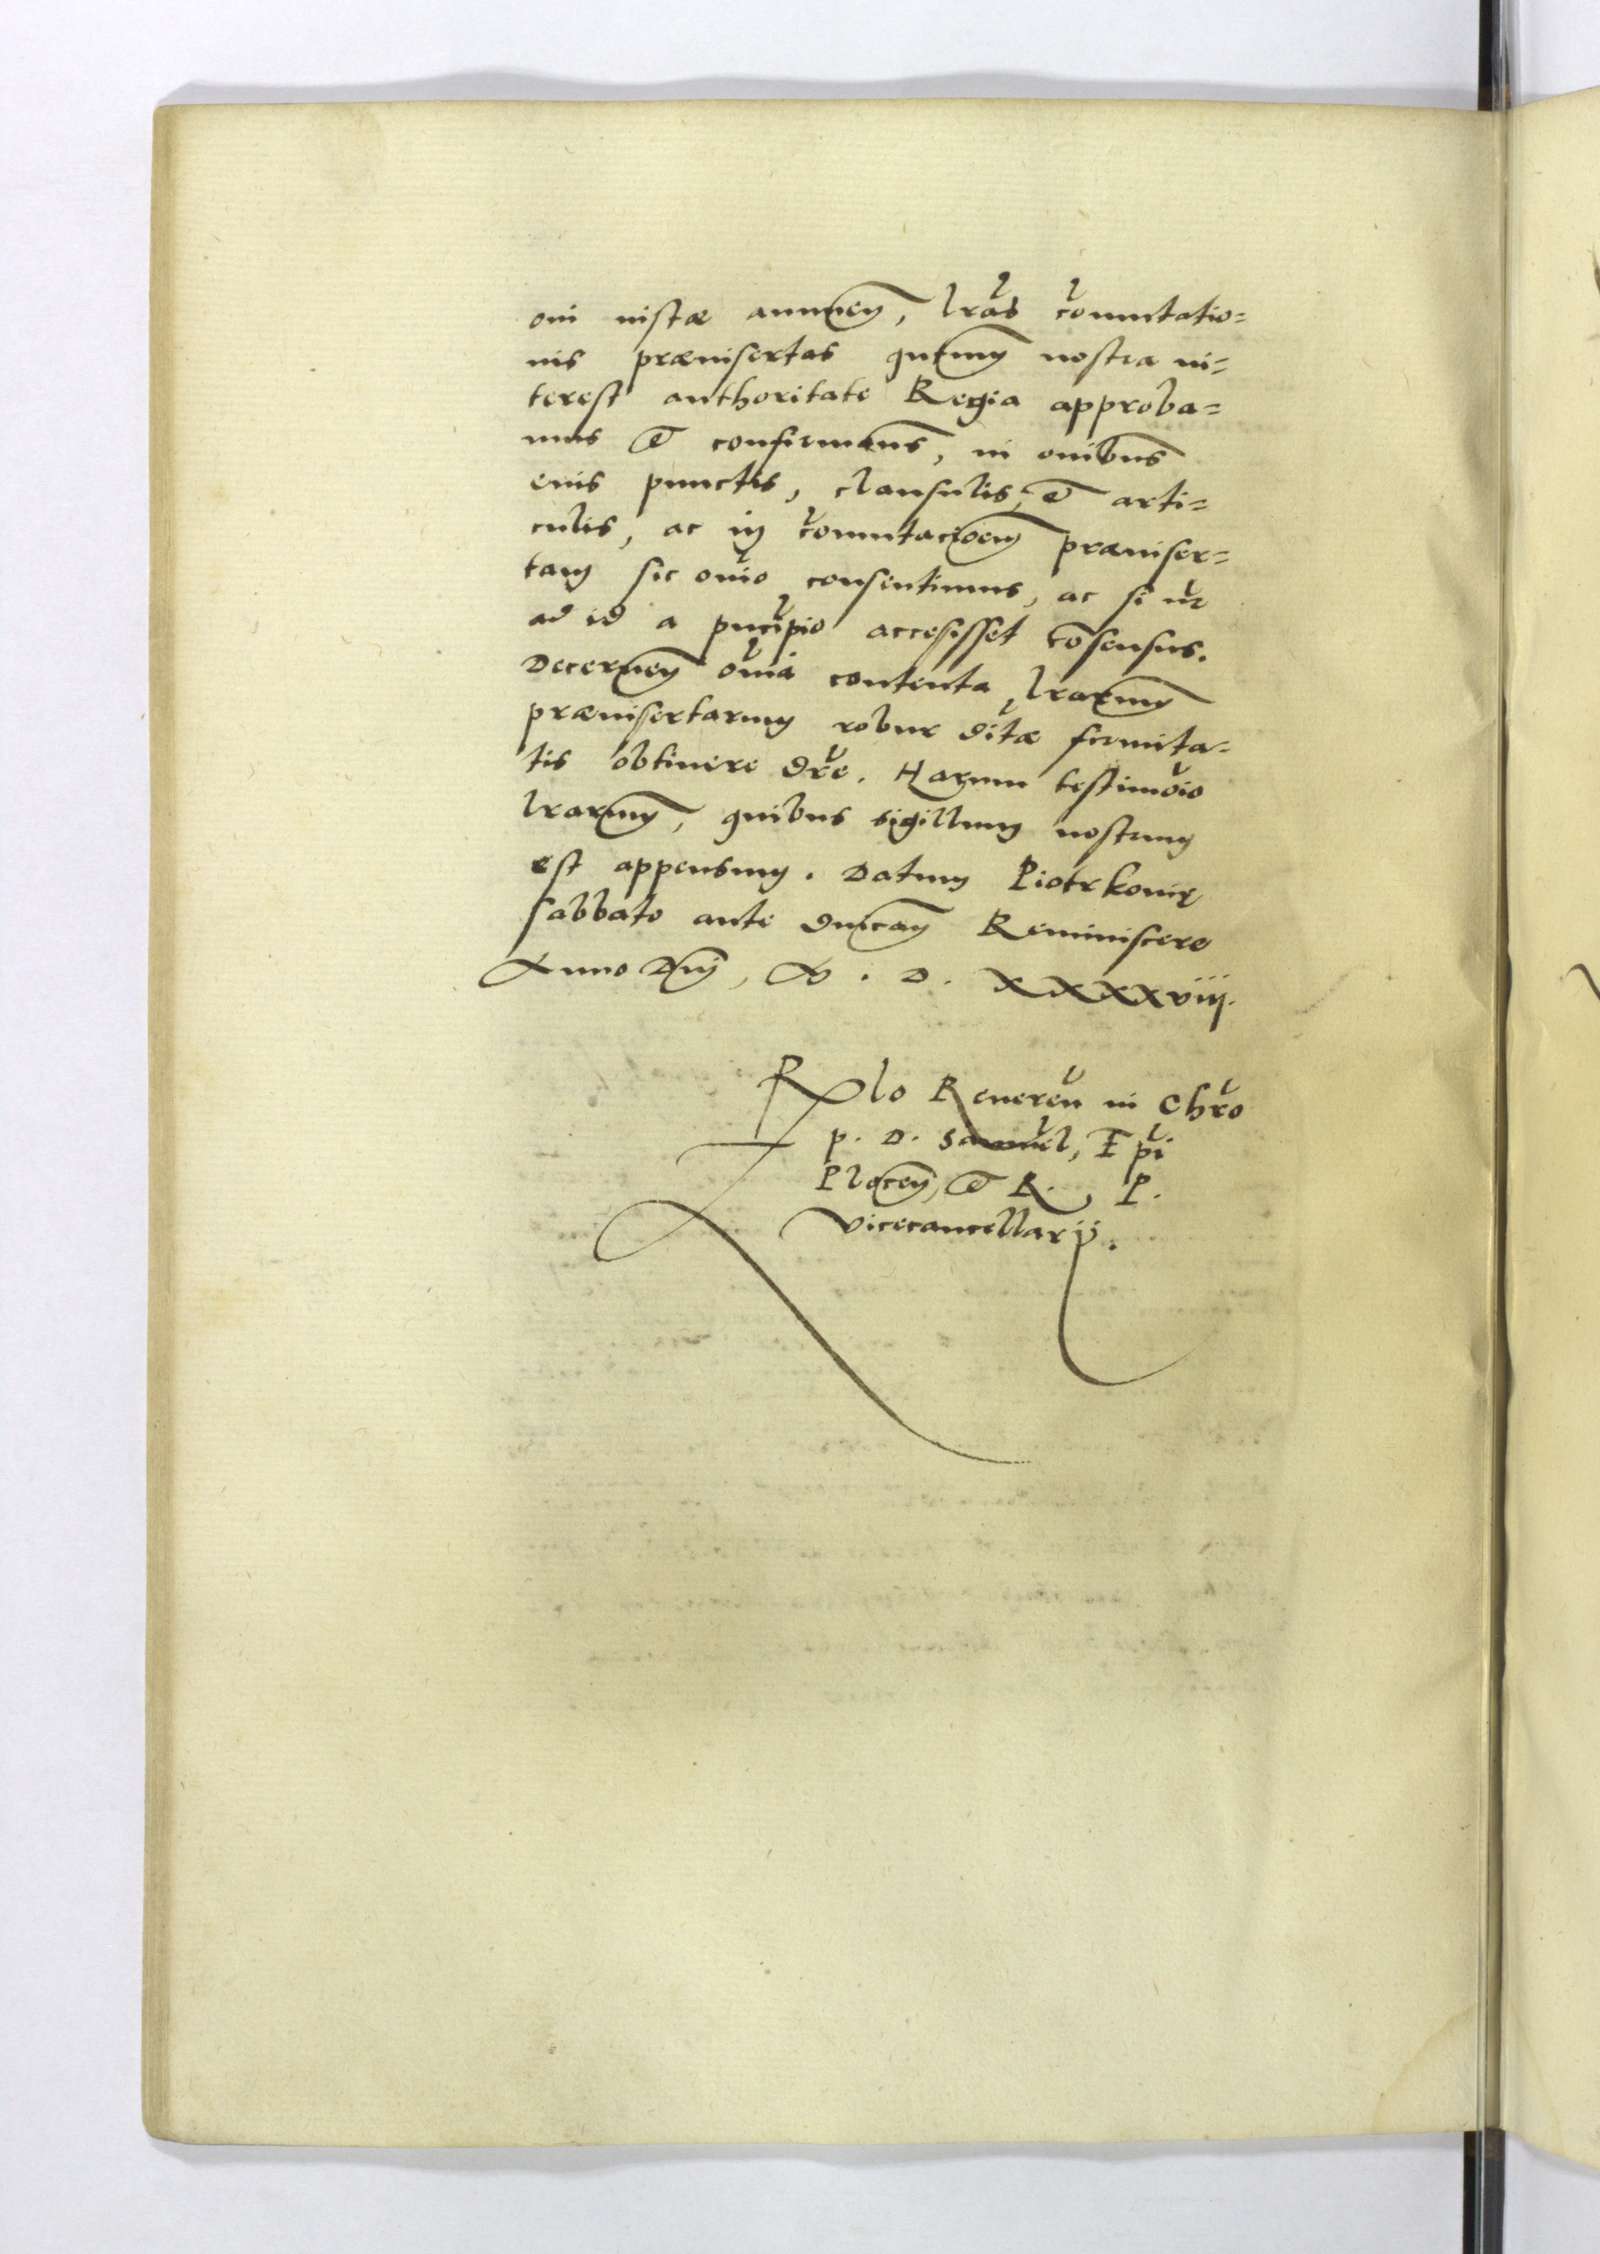 oni iustæ annuen, lras comutatio=
nis præinsertas quatenus nostra in=
terest authoritate Regia approba=
mus et confirmamus, in omnibus
eius punctis, clausulis, et arti=
culis, ac in comutacioem præinser=
tam sic omnio consentimus, ac si nr
ad id a pncipio accesisset cosensus.
Decernen omnia contenta, lrarum
præinsertarum robur ditæ firmita=
tis obtinere dre. Harum testimoio
lrarum, quibus sigillum nostrum
est appensum. Datum Piotrkovię
sabbato ante dnicam Reminiscere
Anno Dni, M. D. XXXXviij.
Rlo Reveren in Chro
p. D. Samuel, Epi
Plocen, et R. P.
vicecancellarij.